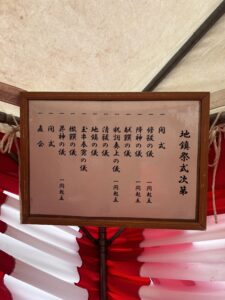 地鎮祭式次第
一 開式
一 修祓の儀 一同起立
一 降神の儀 一同起立
一 献饌の儀
一 祝詞奏上の儀 一同起立
一 清祓の儀
一 地鎮の儀
一 玉串奉奠の儀
一 撤饌の儀
一 昇神の儀 一同起立
一 閉式
一 直会